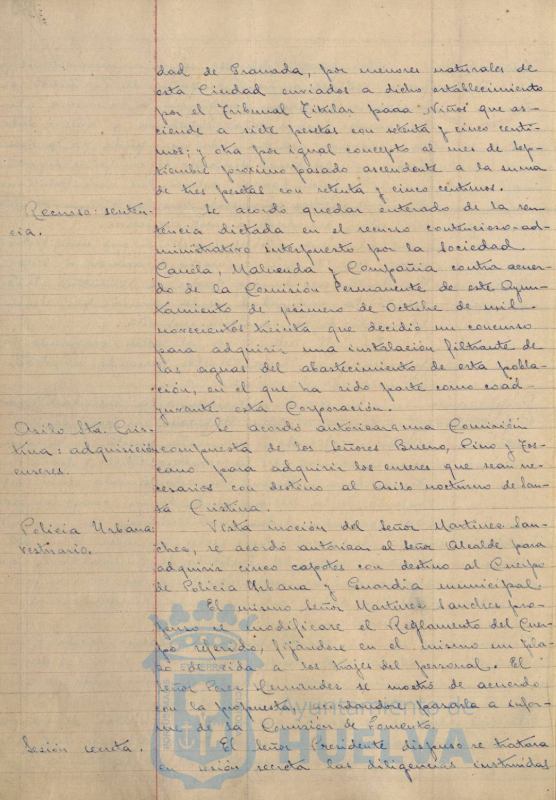 dad de Granada, por menores naturales de
esta Ciudad enviados a dicho establecimiento
por el Tribunal Titular para Niños que as-
ciende a siete pesetas con setenta y cinco centi-
mos; y otra por igual concepto al mes de Sep-
tiembre proximo pasado ascendente a la suma
de tres pesetas con setenta y cinco centimos.
Recurso: senten-
cia.
Se acordó quedar enterado de la sen-
tencia dictada en el recurso contencioso-ad-
ministrativo interpuesto por la Sociedad
Canela, Maluenda y Compañia contra acuer-
do de la Comisión Permanente de este Ayun-
tamiento de primero de Octubre de mil
novecientos treinta que decidió un concurso
para adquirir una instalación filtrante de
las aguas del abastecimiento de esta pobla-
ción, en el que ha sido parte como coad-
yuvante esta Corporación.
Asilo Sta. Cris-
tina: adquisición
enseres.
Se acordó autorizar una Comisión
compuesta de los Señores Bueno, Pino y Tos-
cano para adquirir los enseres que sean ne-
cesarios con destino al Asilo nocturno de San-
ta Cristina.
Policia Urbana:
vestuario.
Vista moción del Señor Martinez San-
chez, se acordó autorizar al Señor Alcalde para
adquirir cinco capotes con destino al Cuerpo
de Policia Urbana y Guardia municipal
El mismo Señor Martinez Sanchez pro-
puso se modificare el Reglamento del Cuer-
po referido, fijándose en el mismo un pla-
zo de vida a los trajes del personal. El
Señor Perez se mostró de acuerdo
con la propuesta, acordandose pasarla a infor-
me de la Comisión de Fomento.
Sesión secreta.
El Señor Presidente dispuso se tratara
en sesión secreta las diligencias instruidas
Ayuntamiento de
HUELVA